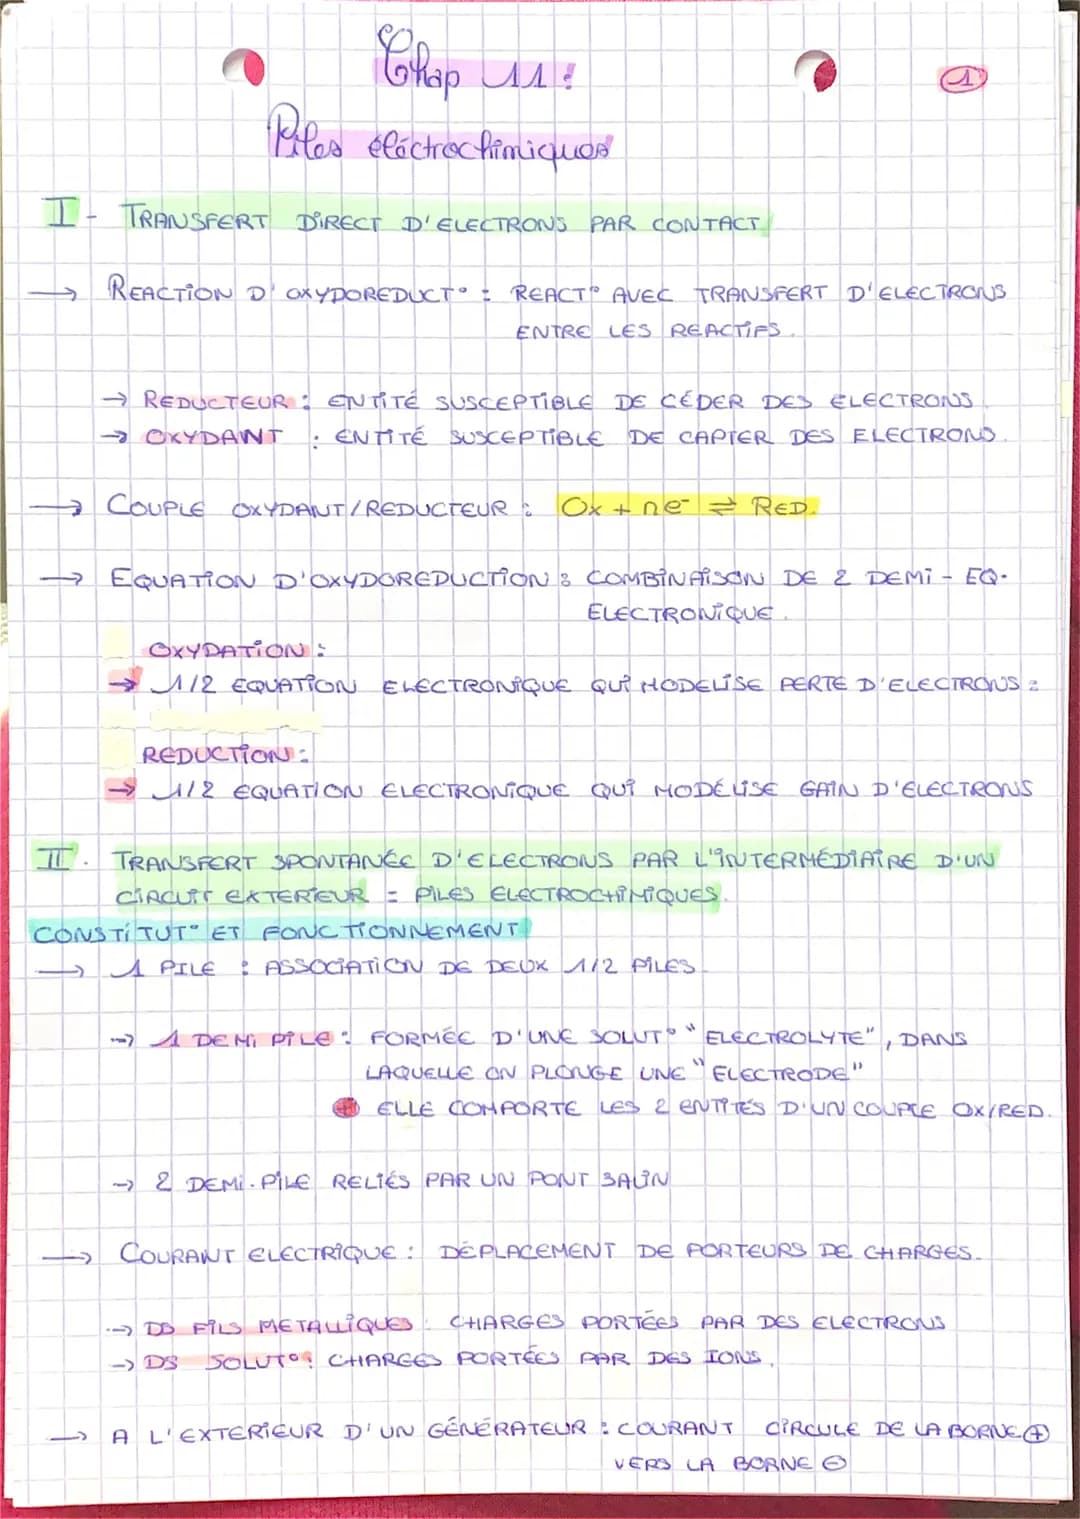 Chap 11 :
1
Piles éléctrochimiques
I - TRANSFERT DIRECT D'ELECTRONS PAR CONTACT.
→ REACTION D'OXYDOREDUCT° : REACT° AVEC TRANSFERT D'ELECTRONS
ENTRE LES REACTIFS.
→ REDUCTEUR : ENTITÉ SUSCEPTIBLE DE CÉDER DES ELECTRONS.
→ OXYDANT : ENTITÉ SUSCEPTIBLE DE CAPTER DES ELECTRONS.
→ COUPLE OXYDANT/REDUCTEUR : Ox + ne⁻ ⇌ RED.
→ EQUATION D'OXYDOREDUCTION : COMBINAISON DE 2 DEMI-EQ.
ELECTRONIQUE.
OXYDATION :
→ 1/2 EQUATION ELECTRONIQUE QUI MODELISE PERTE D'ELECTRONS :
REDUCTION :
→ 1/2 EQUATION ELECTRONIQUE QUI MODELISE GAIN D'ELECTRONS
II. TRANSFERT SPONTANÉE D'ELECTRONS PAR L'INTERMÉDIAIRE D'UN
CIRCUIT EXTERIEUR = PILES ELECTROCHIMIQUES.
CONSTITUT° ET FONCTIONNEMENT
→ 1 PILE : ASSOCIATION DE DEUX 1/2 PILES
→ 1 DEMI PILE : FORMÉE D'UNE SOLUT° "ELECTROLYTE", DANS
LAQUELLE ON PLONGE UNE "ELECTRODE"
+ ELLE COMPORTE LES 2 ENTITÉS D'UN COUPLE OX/RED.
→ 2 DEMI-PILE RELIÉS PAR UN PONT SALIN
→ COURANT ELECTRIQUE : DÉPLACEMENT DE PORTEURS DE CHARGES.
→ DS FILS METALLIQUES : CHARGES PORTÉES PAR DES ELECTRONS
→ DS SOLUT° : CHARGES PORTÉES PAR DES IONS.
→ A L'EXTERIEUR D'UN GÉNÉRATEUR : COURANT CIRCULE DE LA BORNE ⊕
VERS LA BORNE ⊖